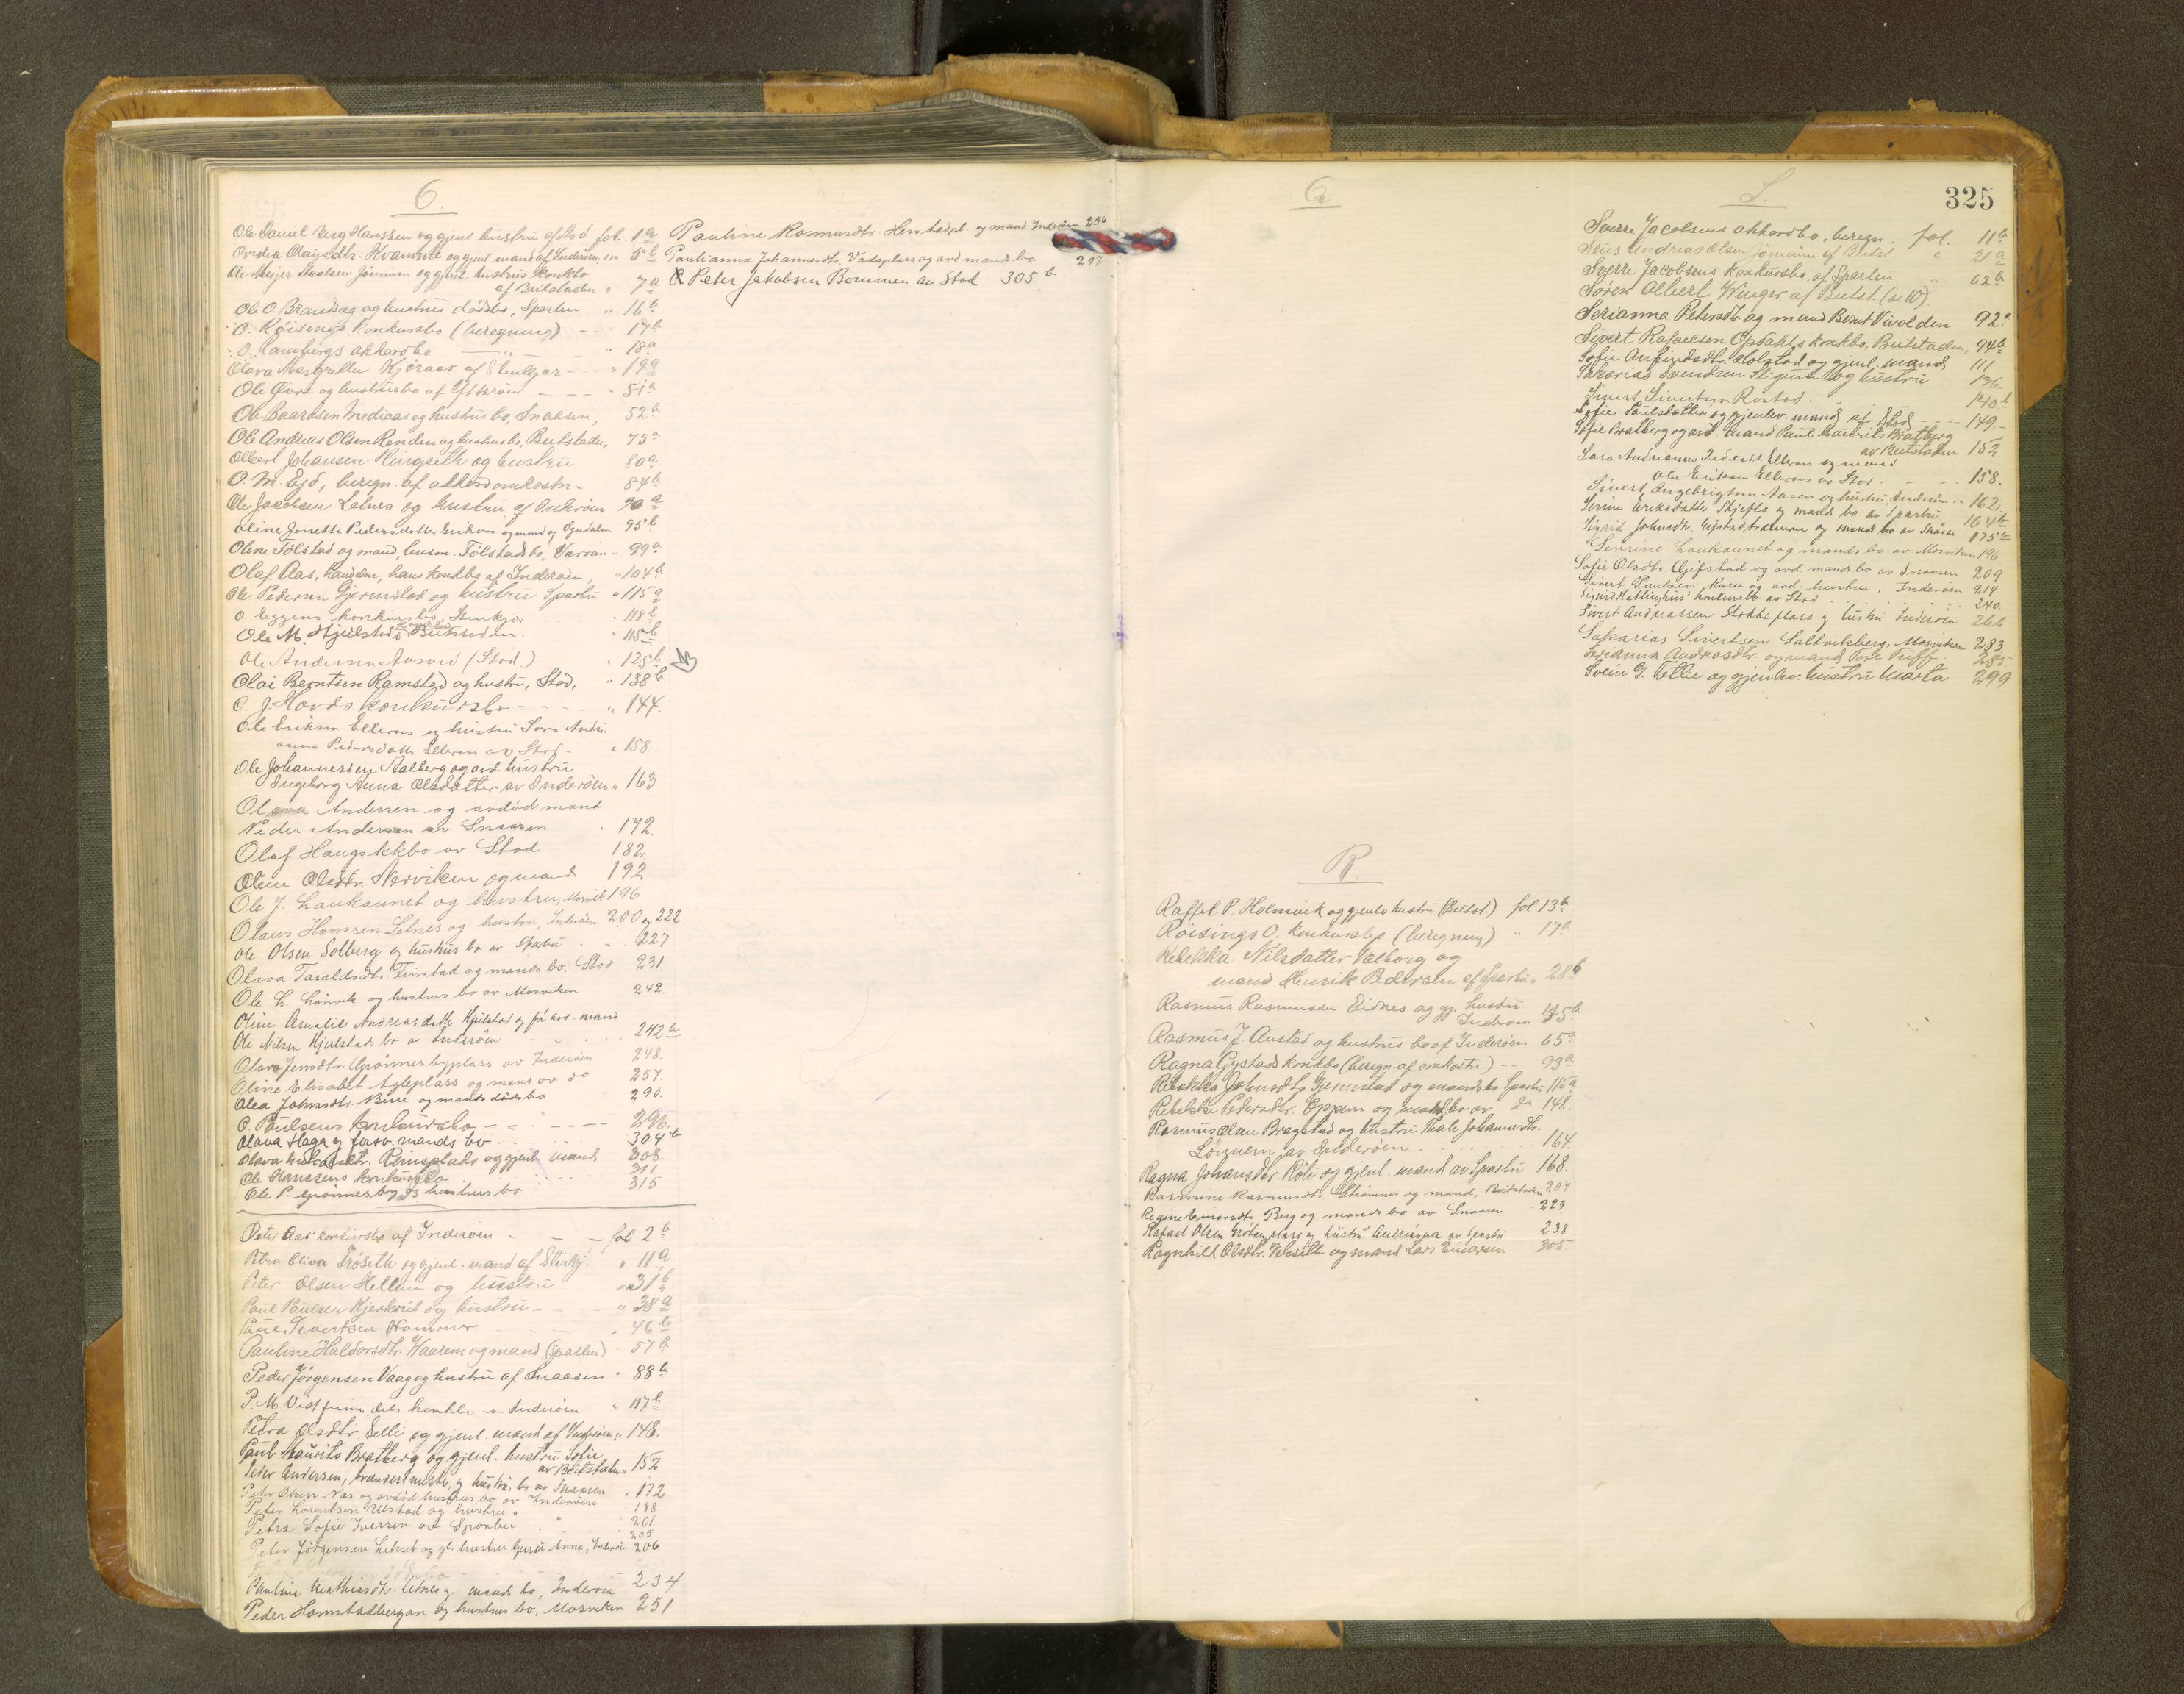 O.
Ole Daniel Berg Hanssen og gjenl hustru af Stod fol. 1a
Ovidia Olausdtr. Kvamme og gjenl. mand af Inderøen " 5b
Ole Meyer Jønnum og gjenl. hustrus konkbo
af Beitstaden " 7a
Ole O. Brandsæg og hustrus dødsbo, Sparbu " 16b
O. Røisings konkursbo (beregning) - - 17a
O. akkordbo - " - 18a
Olava Margrethe Kjøraas af Stenkjær - - " 19a
Ole Øvre og hustrusbo af Ytterøen - - - " 51a
Ole Baardsen Mediaas og hustrus bo, Snaasen, 52b
Ole Andreas Olsen Renden og hustrus bo, Beitstaden, 75a
Albert Johansen Ringseth og hustru 80a
O. M. Eid, beregn. af akkordomkostn. - 84b
Ole Jacobsen Letnes og hustru af Inderøen 90a
Oline Jonetta Pedersdatter og mand af Ogndalen 95b
Oline Følstad og mand, Følstads bo, Varran " 99a
Olaf Aas, handlm, hans konkbo af Inderøen, " 104b
Ole Pedersen Gjermstad og hustru Sparbu " 115a
O Eggens konkursbo, Stenkjær " 118b
Ole M. Hjelstads konkbo Beitstaden " 115b
Ole Andersen Aasved (Stod) " 125b
Olai Berntsen Ramstad og hustru, Stod, " 138b
O. J. Hovds konkursbo - - - - " 144.
Ole Eriksen Ellevns og hustru Sara Andri-
anna Pedersdatter Ellevns av Stod - " 158
Ole Johannessen Aalberg og avd hustru
Ingeborg Anna Olsdatter av Inderøen " 163
Olava Andersen og avdød mand
Peder Andersen av Snaasen . 172.
Olaf Haugs kkbo av Stod 182
Oline Olsdtr. Nerviken og mand 192
Ole J. Laukaunet og hustru, Mosvik 196
Olaus Hanssen Letnes og hustru, Inderøen 200 og 222
Ole Olsen Solberg og hustrus bo av Sparbu . . 227
Olava Taraldsdtr. Tinstad og mands bo, Stod 231
Ole L. Leirvik og hustrus bo av Mosviken 242.
Oline Amalie Andreasdatter Hjelstad og avd. mand
Ole Nilsen Hjelstads bo av Inderøen 242b
Olava Jensdtr. Grønnesbyplass av Inderøen 248.
Oline Elisabet Agleplass og mand av do 257.
Olea Johnsdtr. Beire og mands dødsbo 290.
O. Paulsens konkursbo - - - - 296.
Olava Haga og forsv. mands bo . . . 304b
Olava dtr. Reinsplads og gjenl. mand 308
Ole Hanssens konkursbo 311
Ole P. Grønnesby og hustrus bo 315
Peter Aas' konkursbo af Inderøen - - - fol. 2b
Petra Oliva Røseth og gjenl. mand af Stenkj. " 11a
Peter Olsen Mellum og hustru " 31b
Paul Paulsen Kjerknet og hustru - - " 38a
Paul Sivertsen Hammer - - " 46b
Pauline Haldorsdtr. Waarem og mand (Sparbu) - 57b
Peder Jørgensen Vaag og hustru af Snaasen " 88b
P. M. Vist firma, dets konkbo av Inderøen " 117b
Petra Olsdtr. Selli og gjenl. mand af Inderøen " 148.
Paul Maurits Bratberg og gjenl. hustru Sofie
av Beitstaden " 152
Peder Andersen, og hustru, bo av Snaasen " 172
Peter Olsen Næs og avdød hustrus bo av Inderøen " 188
Peter Lorentsen Ulstad og hustru " 201
Petra Sofie Iversen av Sparbu . " 205
Peter Jørgensen Letset og gl. hustru Gurui Anna, Inderøen 206
Pauline Mathiasdtr. Letnes og mands bo, Inderøen 234
Peder Hamstadbergan og hustrus bo, Mosviken 251
Pauline Rasmusdtr. Henstadpl. og mand Inderøen 256
Paulianna Johannesdtr. Vadaplass og avd mands bo 297
Peter Jakobsen Bommen av Stod 305b
Q.
R.
Raffel P. Holmvik og gjenlv hustru (Beitst.) fol 13b
Røisings O. konkursbo (beregning) " 17a
Rebekka Nilsdatter Valborg og
mand Henrik Pedersen af Sparbu " 28b
Rasmus Rasmussen Eidnes og gj. hustru
Inderøen 45b
Rasmus J. Austad og hustrus bo af Inderøen 65a
Ragna Gystads konkbo (beregn. af omkostn.) - - 93a
Rebekka Johnsdtr. Gjermstad og mands bo Sparbu 115a
Rebekka Pedersdtr. Oppem og mands bo av do 148.
Rasmus Olsen Bragstad og hustru Thale Johannesdtr.
Lønnem av Inderøen . . . 164
Ragna Johansdtr. Røli og gjenl. mand av Sparbu 168.
Rasmine Rasmusdtr. Strømnes og mand, Beitstaden 207
Regine Einarsdtr. Berg og mands bo av Snaasen . 223
Rafael Olsen Grøtan plass og hustru Andrianna av Sparbu 238
Ragnhild Olsdtr. Velseth og mand Lars Einarsen 305.
S. 325
Sverre Jacobsens akkordbo, beregn. fol. 11b
Sefus Andreas Olsen Jønnum af Beitst. " 21a
Sverre Jacobsens konkursbo, af Sparbu " 62b
Søren Albert Winger af Beitst. (se W).
Serianna Petersdtr og mand Bernt Vivolden 92a
Sivert Rafaelsen Opdahls konkbo, Beitstaden, 94b
Sofie Anfindsdtr. Holstad og gjenl. mand 111
Sakarias Svendsen og hustru 136.
Sivert Sivertsen Ristad . . . 140b
Sofie Paulsdatter og gjenlev. mand af Stod - - 149.-
Sofie Bratberg og avd. mand Paul Maurits Bratberg
av Beitstaden 152
Sara Andrianna Pedersdt. Ellevns og mand
Ole Eriksen Ellevns av Stod . - - . 158.
Sivert Ingebrigtsen Aasen og hustru, Inderøen . . 162.
Serine Areksdatter Skjeflo og mands bo av Sparbu . 164b
Sigrid Johnsdtr. Gifstad og mands bo av Snåsen 175b
Sevrine Laukaunet og mands bo av Mosviken 196
Sofie Olsdtr. Gifstad og avd. mands bo av Snaasen 209
Sivert Paulsen Kunn og avd. hustru, Inderøen 214
Sigurd Hattlinghus' konkursbo av Stod . . . . 240.
Sivert Andreassen Stokke plass og hustru Inderøen 266
Sakarias Sivertsen Saltviksberg, Mosviken 283
Serianna Andreasdtr. og mand Tore Tuff 285
Svein G. Tetlie og gjenlev. hustru Marta 299